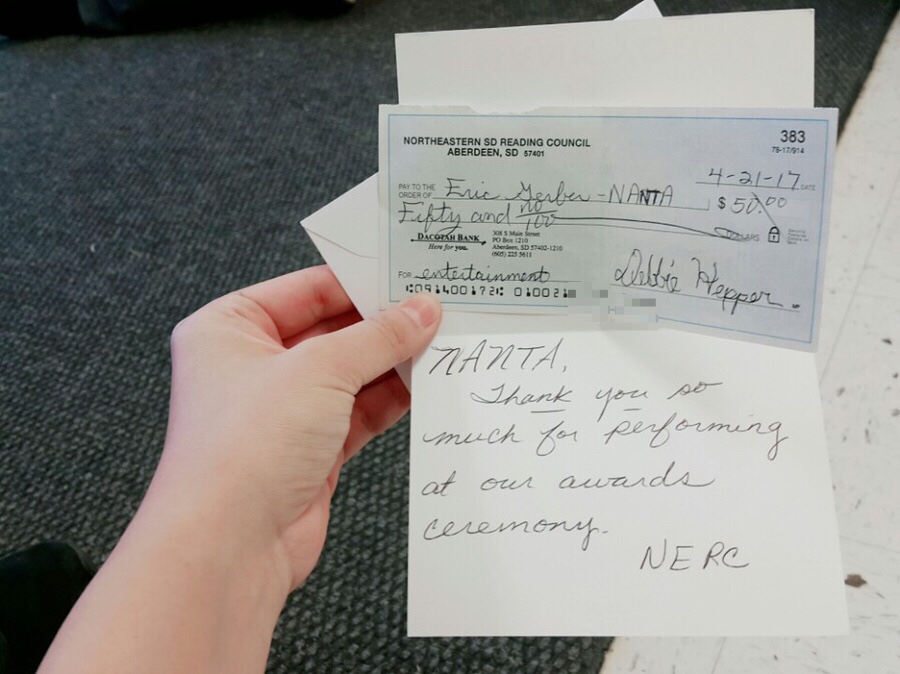 NORTHEASTERN SD READING COUNCIL
ABERDEEN, SD 57401
383
78-17/914
4-21-17 DATE
PAY TO THE
ORDER OF Eric Gerber - NANTA $ 50.00
Fifty and no/100 DOLLARS
DACOTAH BANK
Here for you.
308 S Main Street
PO Box 1210
Aberdeen, SD 57402-1210
(605) 225 5611
FOR entertainment Debbie Hepper MP
NANTA,
Thank you so
much for performing
at our awards
ceremony.
NERC